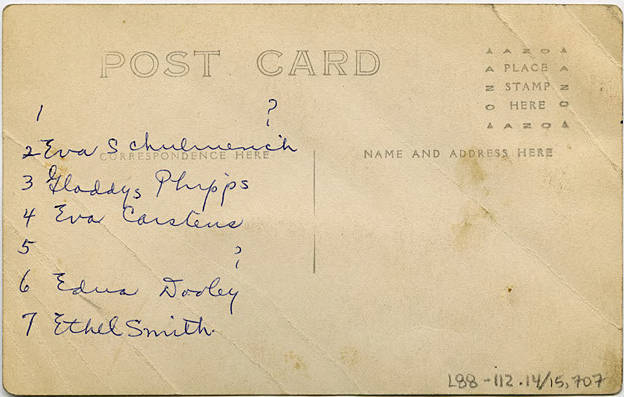 POST CARD
A Z O A
A PLACE A
Z STAMP Z
O HERE O
A Z O A
1 ?
2 Eva Schulmerich
CORRESPONDENCE HERE
NAME AND ADDRESS HERE
3 Gladdys Phipps
4 Eva Carstens
5 ?
6 Edna Dooley
7 Ethel Smith
L88-112.14/15,707